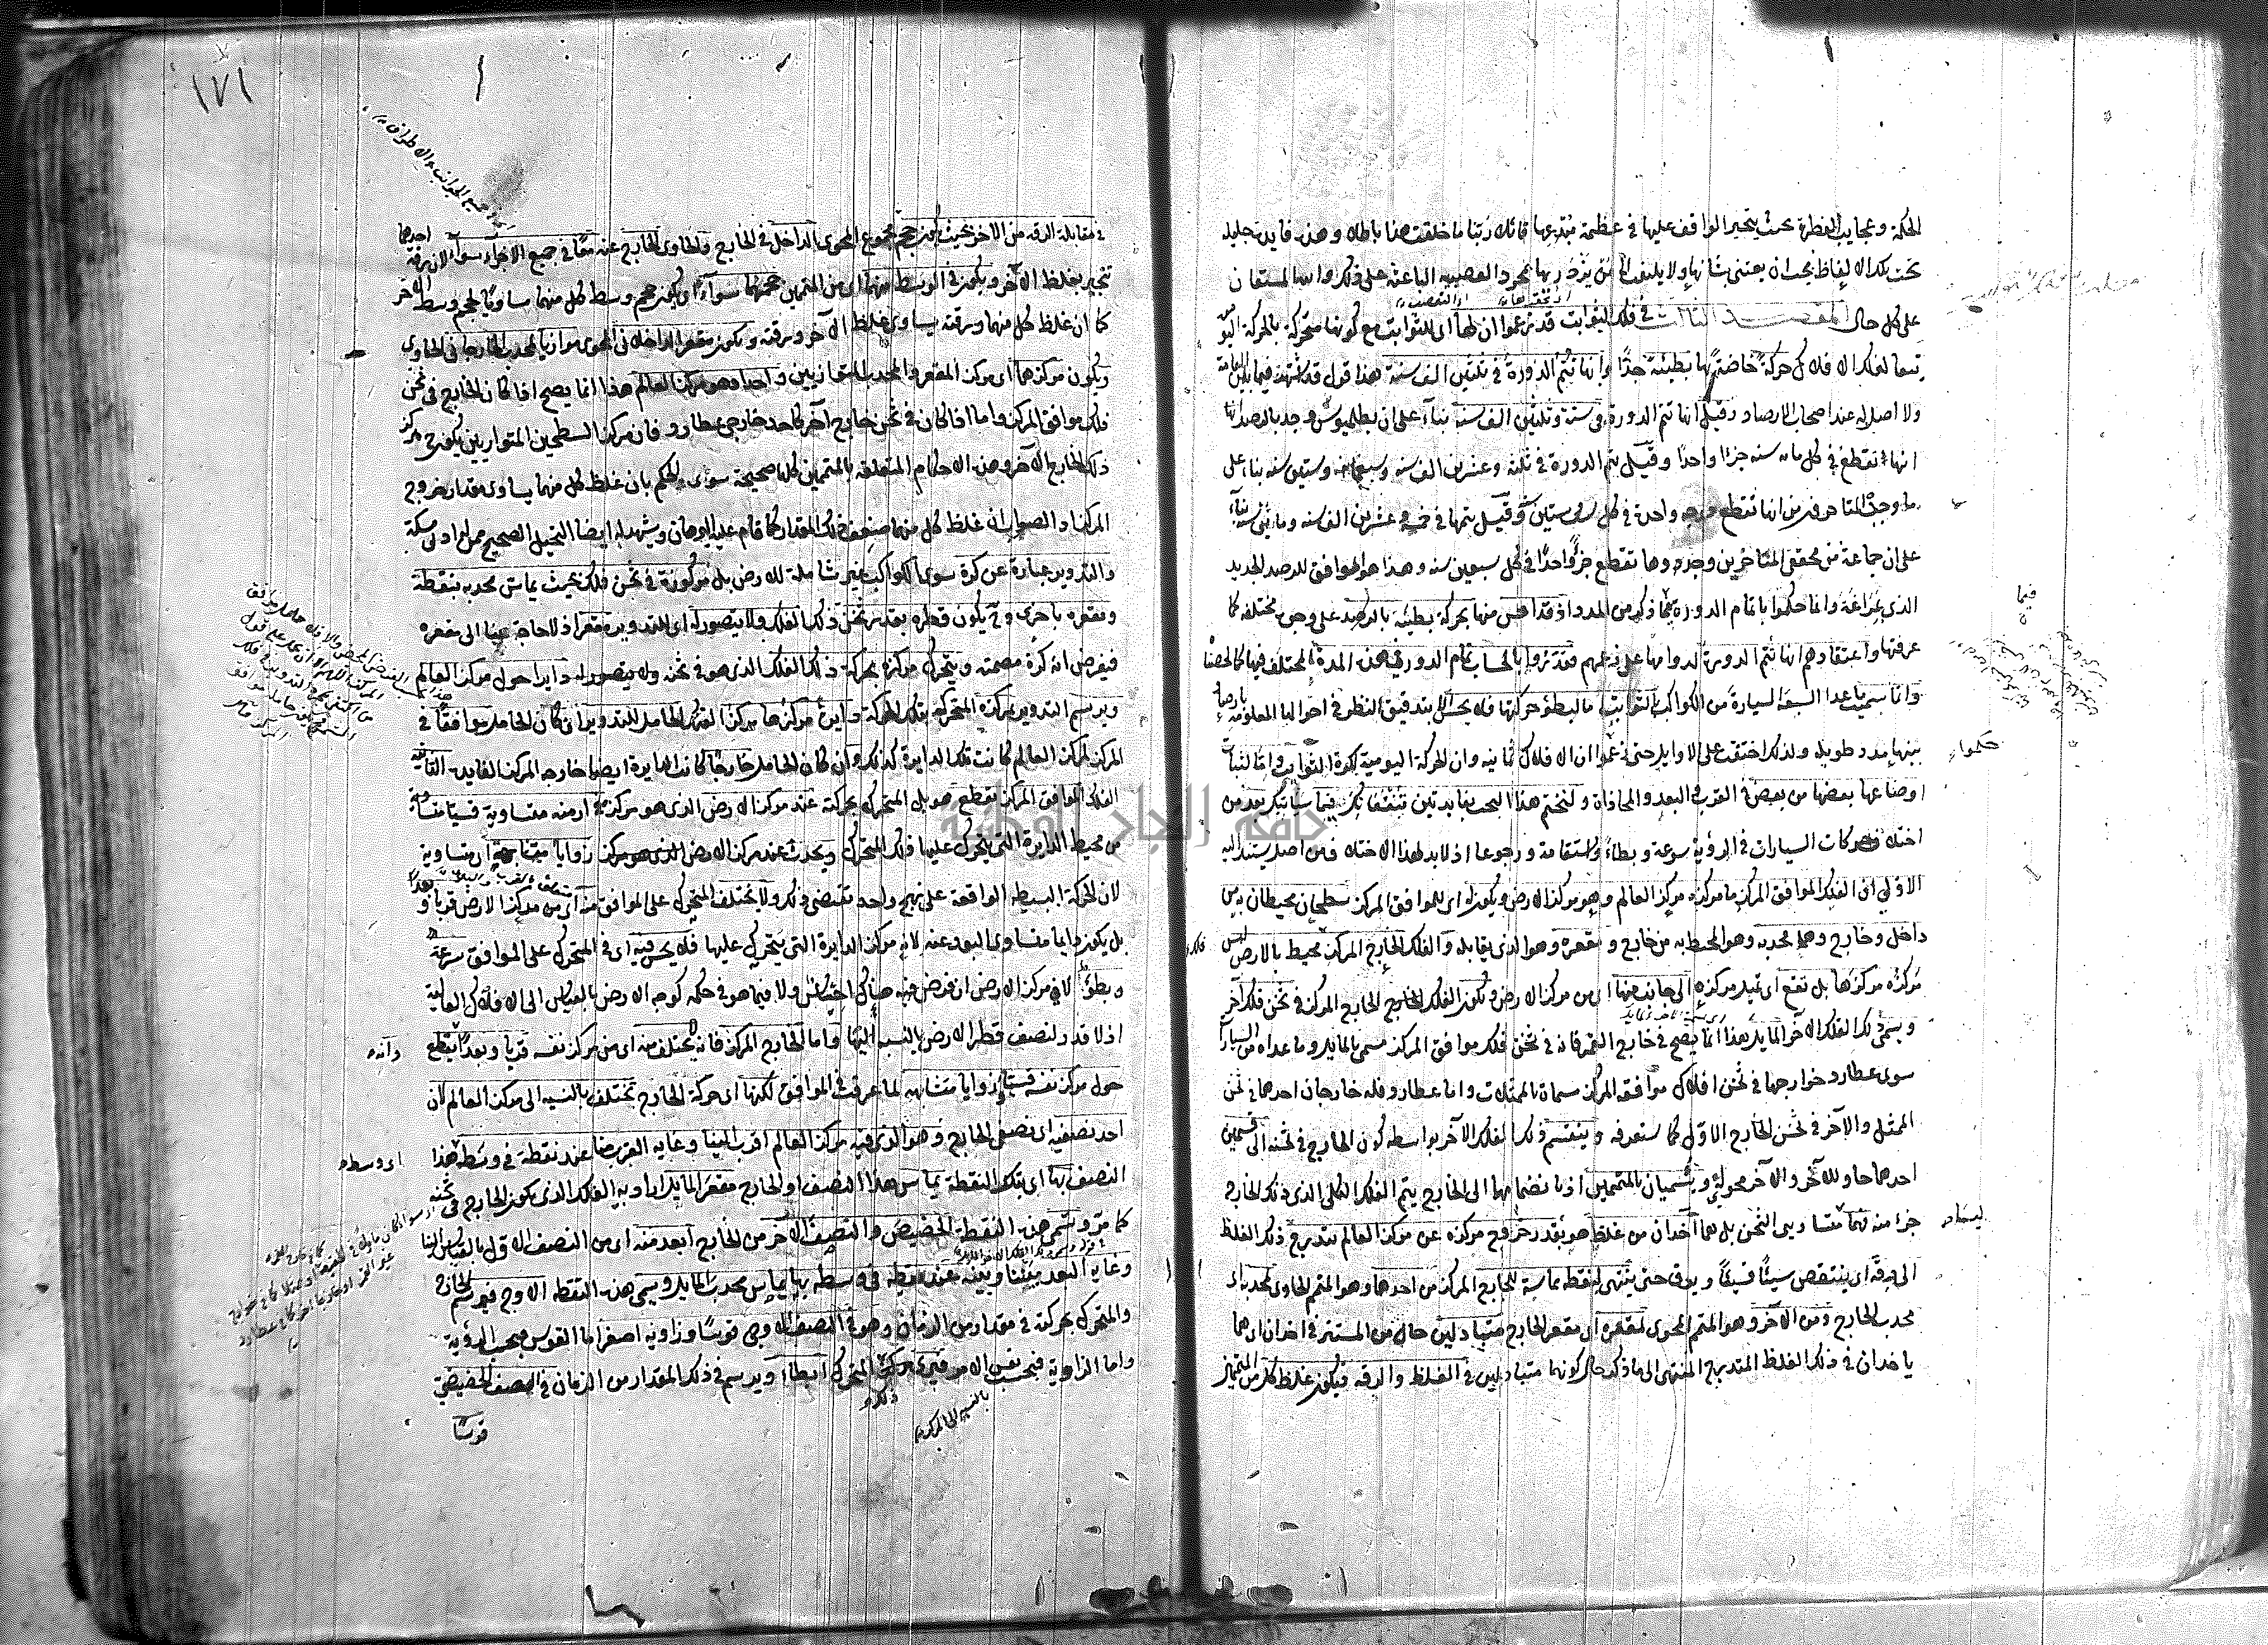 الحكمة وعجايب الفطرة بحيث يتحير الواقف عليها في عظمة مبدعها قائلا ربنا ما خلقت هذا باطلا وهذه فايدة جليلة
تحت تلك الالفاظ يجب ان يعتنى بشانها ولا يلتفت الى من يزدريها بمجرد العصبية الباعثة على ذلك والله المستعان
على كل حال المقصد الثالث في فلك الثوابت قد زعموا ان لها اى للثوابت مع كونها متحركة بالحركة اليومية
تبعا لفلك الافلاك حركة خاصة بها بطيئة جدا وانها تتم الدورة في ثلثين الف سنة هذا قول قد اشتهر فيما بين العامة
ولا اصل له عند اصحاب الارصاد وقيل انها تتم الدورة في ستة وثلثين الف سنة بناء على ان بطلميوس وجد بالرصد انها
انها تقطع في كل مائة سنة جزءا واحدا وقيل يتم الدورة في ثلثة وعشرين الف سنة وسبعمائة وستين سنة بناء على
ما وجده المتاخرون من انها تقطع درجة واحدة في كل ست وستين سنة وقيل يتمها في خمسة وعشرين الف سنة ومائتى سنة بناء
على ان جماعة من محققى المتاخرين وجدوها تقطع جزءا واحدا في كل سبعين سنة وهذا هو الموافق للرصد الجديد
الذى بمراغة وانما حكموا باتمام الدورة بما ذكر من المدد اذ قد احس منها بحركة بطيئة بالرصد على وجوه مختلفة كما
عرفتها واعتقادهم انها تتم الدورة لدوامها على زعمهم فقدروا بالحساب تمام الدورة في هذه المدة المختلف فيها كما لخصنا
وانما سميت ما عدا السبعة السيارة من الكواكب بالثوابت اما لبطؤ حركتها فلا يحس الا بتدقيق النظر في احوالها المعلومة بارصاد
بينها مدد طويلة ولذلك اختفت على الاوايل حتى زعموا ان الافلاك ثمانية وان الحركة اليومية لكرة الثوابت واما لثبات
اوضاعها بعضها من بعض في القرب والبعد والمحاذاة ولنختم هذا البحث بفايدتين تنفعانك فيما سياتيك بعد من
اختلاف حركات السيارات في الرؤية سرعة وبطأ واستقامة ورجوعا اذ لا بد لهذا الاختلاف من اصل يستند اليه
الاولى ان الفلك الموافق المركز ما مركزه مركز العالم وهو مركز الارض ويكون له اى للموافق المركز سطحان محيطان به من
داخل وخارج وهما محدبه وهو المحيط به من خارج ومقعره وهو الذى يقابله والفلك الخارج المركز محيط بالارض ليس
مركزه مركزها بل تقع اى تميل مركزه الى جانب منها اى من مركز الارض ويكون الفلك الخارج المركز في ثخن فلك آخر
ويسمى ذلك الفلك الآخر المايل هذا انما يصح في خارج القمر فانه في ثخن فلك موافق المركز مسمى بالمايل وما عداه من السيارات
سوى عطارد خوارجها في ثخن افلاك موافقة المركز مسماة بالممثلات واما عطارد فله خارجان احدهما في ثخن
الممثل والآخر في ثخن الخارج الاول كما ستعرفه وينقسم ذلك الفلك الآخر بواسطة كون الخارج في ثخنه الى قسمين
احدهما حاو للآخر والآخر محوى ويسميان بالمتممين اذ بانضمامهما الى الخارج يتم الفلك الكلى الذى ذلك الخارج
جزء منه ليسا متساويى الثخن بل هما آخذان من غلظ هو بقدر خروج مركزه عن مركز العالم يتدرج ذلك الغلظ
الى رقة اى ينتقص شيئا فشيئا ويدق حتى ينتهى لنقطة مماسة للخارج المركز من احدهما وهو المتمم الحاوى لمحدبه اى
محدب الخارج ومن الآخر وهو المتمم المحوى لمقعره اى مقعر الخارج متبادلين حال من المستتر في آخذان اى هما
ياخذان في ذلك الغلظ المتدرج المنتهى الى ما ذكر حال كونهما متبادلين في الغلظ والرقة فيكون غلظ كل من المتممين
فيما
حكموا
ليسا
١٧١
في مقابلة الرقة من الآخر بحيث يكون حجم مجموع المحوى الداخل في الخارج والحاوى الخارج عنه معا في جميع الاجزاء سواء لان رقة احدهما
تنجبر بغلظ الآخر ويكون في الوسط منهما اى من المتممين حجمهما سواء اى يكون حجم وسط كل منهما مساويا لحجم وسط الآخر
كما ان غلظ كل منهما ورقته يساوى غلظ الآخر ورقته ويكون مقعر الداخل في المحوى موازيا لمحدب الخارج في الحاوى
ويكون مركزهما اى مركز المقعر والمحدب المتوازيين واحدا وهو مركز العالم هذا انما يصح اذا كان الخارج في ثخن
فلك موافق المركز واما اذا كان في ثخن خارج آخر كاحد خارجى عطارد فان مركز السطحين المتوازيين يكون مركز
ذلك الخارج الآخر وهذه الاحكام المتعلقة بالمتممين كلها صحيحة سوى الحكم بان غلظ كل منهما يساوى مقدار خروج
المركز والصواب ان غلظ كل منهما ضعف ذلك المقدار كما قام عليه البرهان ويشهد له ايضا التخيل الصحيح ممن له ادنى مسكة
والتدوير عبارة عن كرة سوى الكواكب غير شاملة للارض بل مركوزة في ثخن فلك بحيث يماس محدبه بنقطة
ومقعره باخرى وح يكون قطره بقدر ثخن ذلك الفلك ولا يتصور له اى للتدوير مقعر اذ لا حاجة هنا الى مقعره
فيفرض انه كرة مصمتة ويتحرك مركزه بحركة ذلك الفلك الذى هو في ثخنه ولا يتصور له دايرا حول مركز العالم
ويرسم التدوير بمركزه المتحرك بتلك الحركة دايرة مركزها مركز الفلك الحامل للتدوير ان كان الحامل موافقا في
المركز لمركز العالم كانت تلك الدايرة كذلك وان كان الحامل خارجا كانت الدايرة ايضا خارجة المركز الفايدة الثانية
الفلك الموافق المركز يقطع هو بل المتحرك بحركته عند مركز الارض الذى هو مركزه في ازمنة متساوية قسيا متساوية
من محيط الدايرة التى يتحرك عليها ذلك المتحرك ويحدث عند مركز الارض الذى هو مركزه زوايا متشابهة اى متساوية
لان الحركة البسيطة الواقعة على نهج واحد تقتضى ذلك ولا يختلف المتحرك على الموافق منه اى من مركز الارض قربا وبعدا
بل يكون دايما متساوى البعد عنه لانه مركز الدايرة التى يتحرك عليها فلا يحس فيه اى في المتحرك على الموافق سرعة
وبطؤ لا في مركز الارض ان فرض فيه هناك احساس ولا فيما هو في حكمه كوجه الارض بالقياس الى الافلاك العالية
اذ لا قدر لنصف قطر الارض بالنسبة اليها واما الخارج المركز فانه يختلف منه اى من مركز نفسه قربا وبعدا يقطع
حول مركز نفسه قسيا زوايا متشابهة لما عرفت في الموافق لكنها اى حركة الخارج تختلف بالنسبة الى مركز العالم لان
احد نصفيه اى نصفى الخارج وهو الذى فيه مركز العالم اقرب الينا وغاية القرب منا عند نقطة في وسطه هذا
النصف بها اى بتلك النقطة يماس هذا النصف او الخارج مقعر المايل اراد به الفلك الذى يكون الخارج في ثخنه
كما مر وتسمى هذه النقطة الحضيض والنصف الآخر من الخارج ابعد منه اى من النصف الاول بالقياس الينا
وغاية البعد بيننا وبينه عند نقطة في وسطه بها يماس محدب المايل ويسمى هذه النقطة الاوج فيرسم الخارج
والمتحرك بحركته في مقدار من الزمان وهو في النصف الاوجى قوسا وزاوية اصغر اما القوس فبحسب الرؤية
واما الزاوية فبحسب نفس الامر فيرى حركة المتحرك ابطأ ويرسم في ذلك المقدار من الزمان في النصف الحضيضى
قوسا
اى وسطه
بالنسبة الى المركز